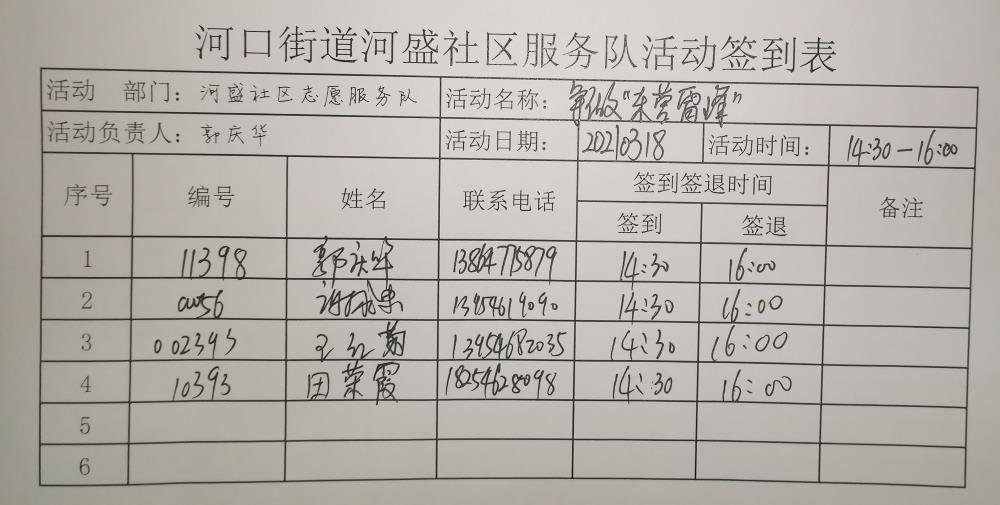 河口街道河盛社区服务队活动签到表
活动 部门：河盛社区志愿服务队 活动名称：争做“东营雷锋”
活动负责人：郭庆华 活动日期：20210318 活动时间：14:30－16:00
序号 编号 姓名 联系电话 签到签退时间 备注
签到 签退
1 11398 郭庆华 13864775879 14:30 16:00
2 13954619090 14:30 16:00
3 002393 王红菊 13954682035 14:30 16:00
4 10393 田荣霞 18254628098 14:30 16:00
5
6